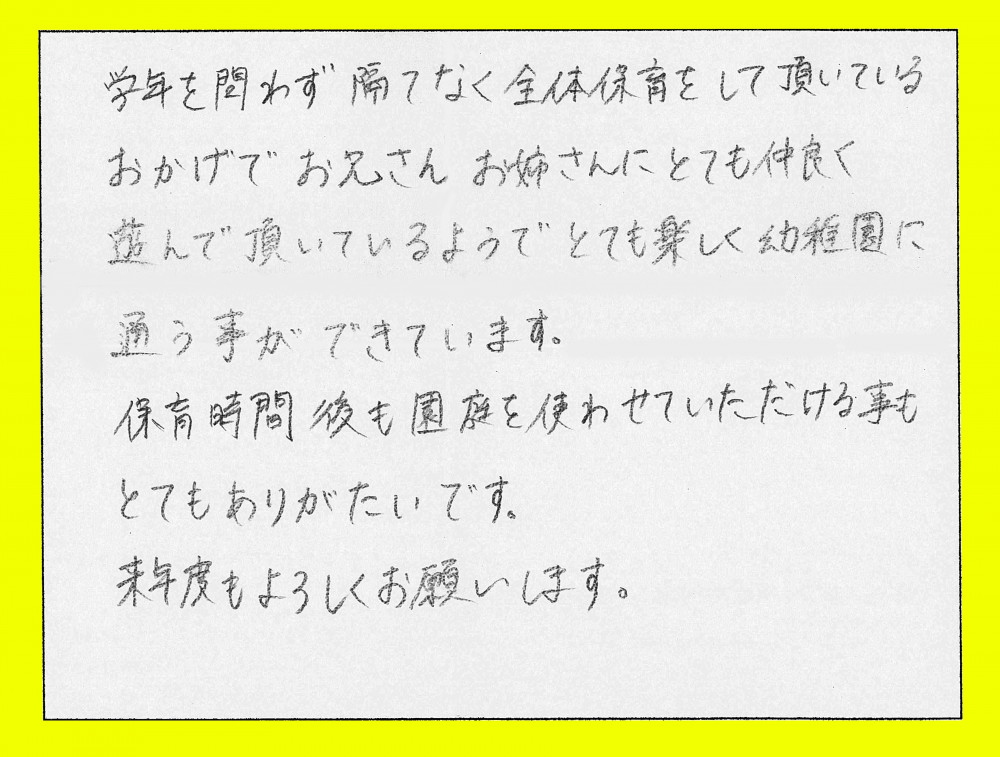 学年を問わず隔てなく全体保育をして頂いている
おかげでお兄さん お姉さんにとても仲良く
遊んで頂いているようでとても楽しく幼稚園に
通う事ができています。
保育時間後も園庭を使わせていただける事も
とてもありがたいです。
来年度もよろしくお願いします。